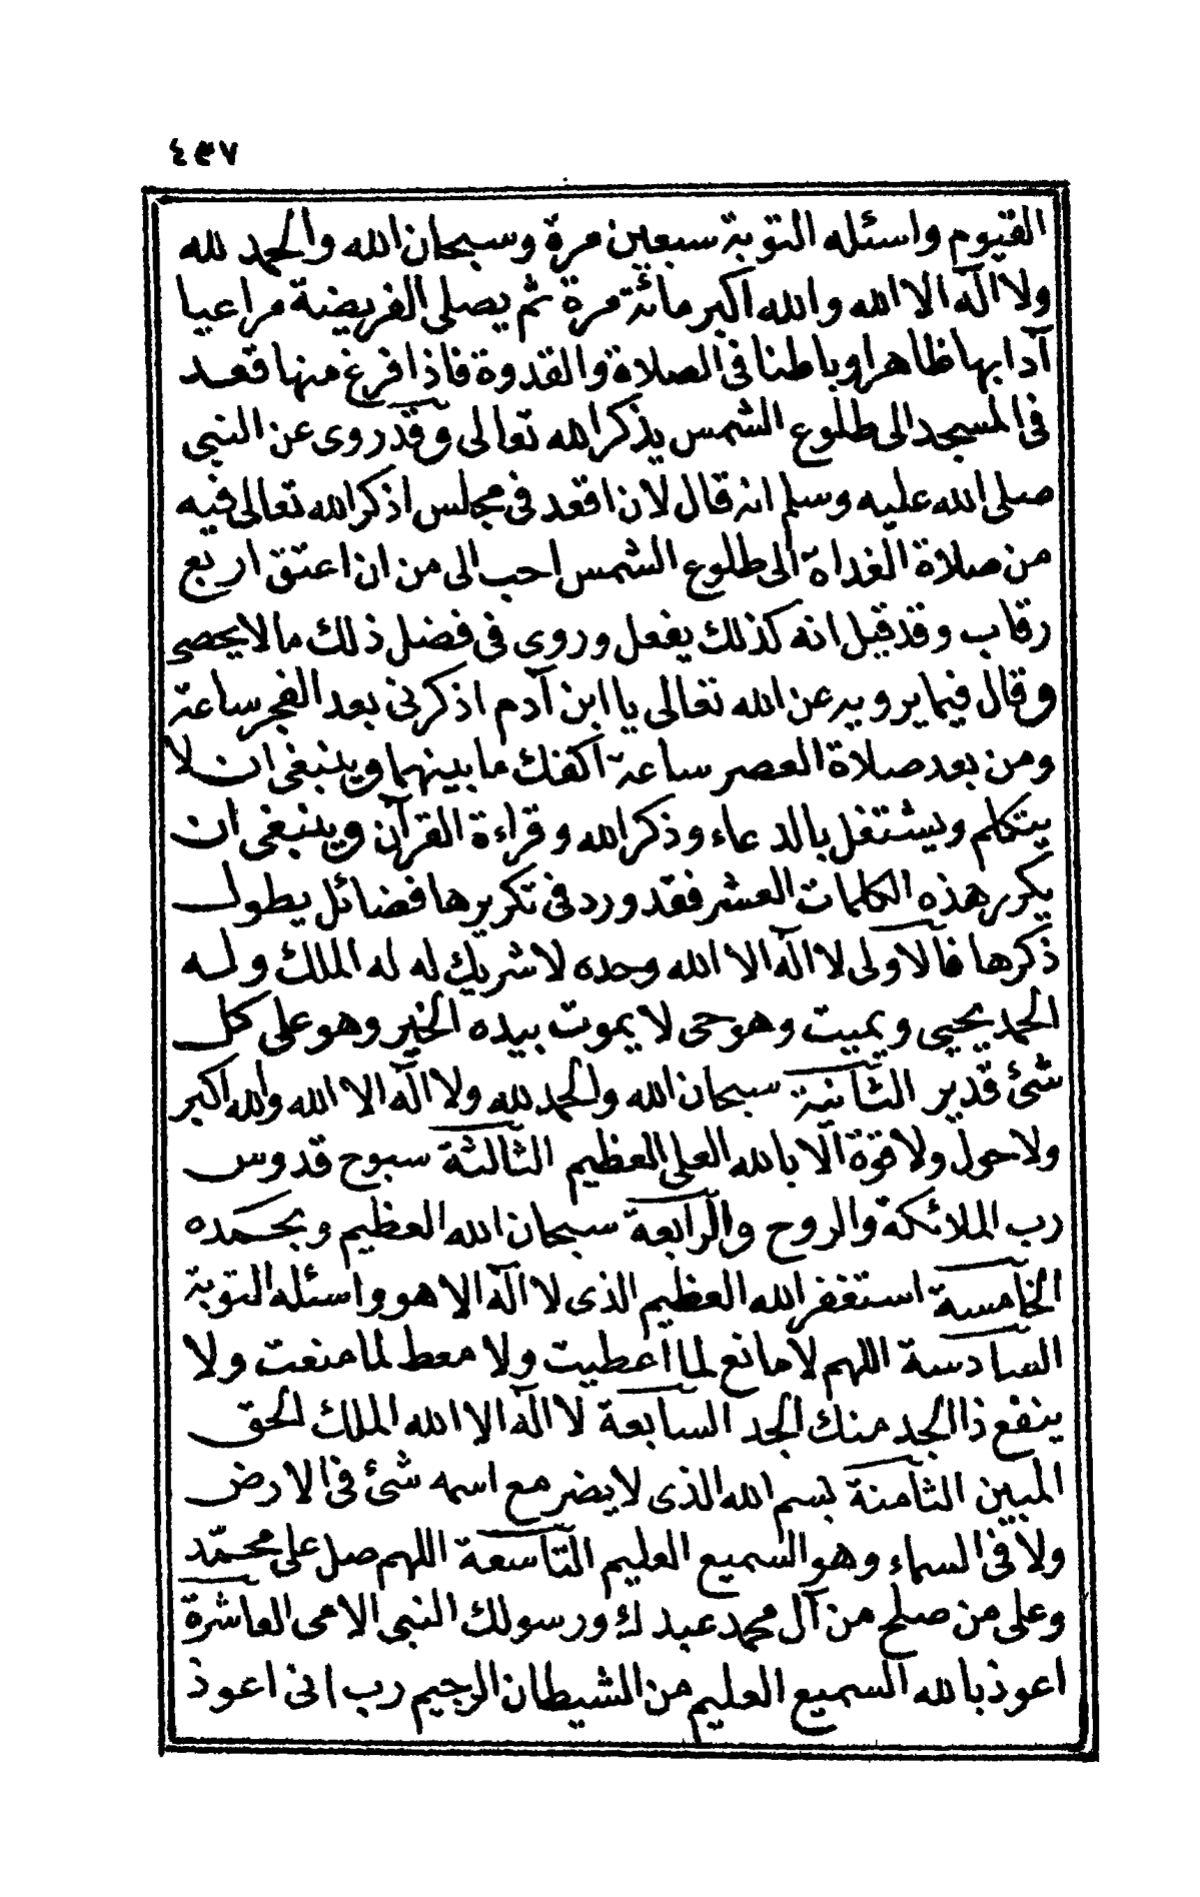 ٤٣٧
القيوم واسئله التوبة سبعين مرة وسبحان الله والحمد لله
ولا اله الا الله والله اكبر مائة مرة ثم يصلى الفريضة مراعيا
آدابها ظاهرا وباطنا فى الصلاة والقدوة فاذا فرغ منها قعد
فى المسجد الى طلوع الشمس يذكر الله تعالى وقد روى عن النبى
صلى الله عليه وسلم انه قال لان اقعد فى مجلس اذكر الله تعالى فيه
من صلاة الغداة الى طلوع الشمس احب الى من ان اعتق اربع
رقاب وقد قيل انه كذلك يفعل وروى فى فضل ذلك ما لا يحصى
وقال فيما يرويه عن الله تعالى يا ابن آدم اذكرنى بعد الفجر ساعة
ومن بعد صلاة العصر ساعة اكفك ما بينهما وينبغى ان لا
يتكلم ويشتغل بالدعاء وذكر الله وقراءة القرآن وينبغى ان
يكرر هذه الكلمات العشر فقد ورد فى تكريرها فضائل يطول
ذكرها فالاولى لا اله الا الله وحده لا شريك له له الملك وله
الحمد يحيى ويميت وهو حى لا يموت بيده الخير وهو على كل
شئ قدير الثانية سبحان الله والحمد لله ولا اله الا الله والله اكبر
ولا حول ولا قوة الا بالله العلى العظيم الثالثة سبوح قدوس
رب الملائكة والروح والرابعة سبحان الله العظيم وبحمده
الخامسة استغفر الله العظيم الذى لا اله الا هو واسئله التوبة
السادسة اللهم لا مانع لما اعطيت ولا معط لما منعت ولا
ينفع ذا الجد منك الجد السابعة لا اله الا الله الملك الحق
المبين الثامنة بسم الله الذى لا يضر مع اسمه شئ فى الارض
ولا فى السماء وهو السميع العليم التاسعة اللهم صل على محمّد
وعلى من صلح من آل محمد عبدك ورسولك النبى الامى العاشرة
اعوذ بالله السميع العليم من الشيطان الرجيم رب انى اعوذ